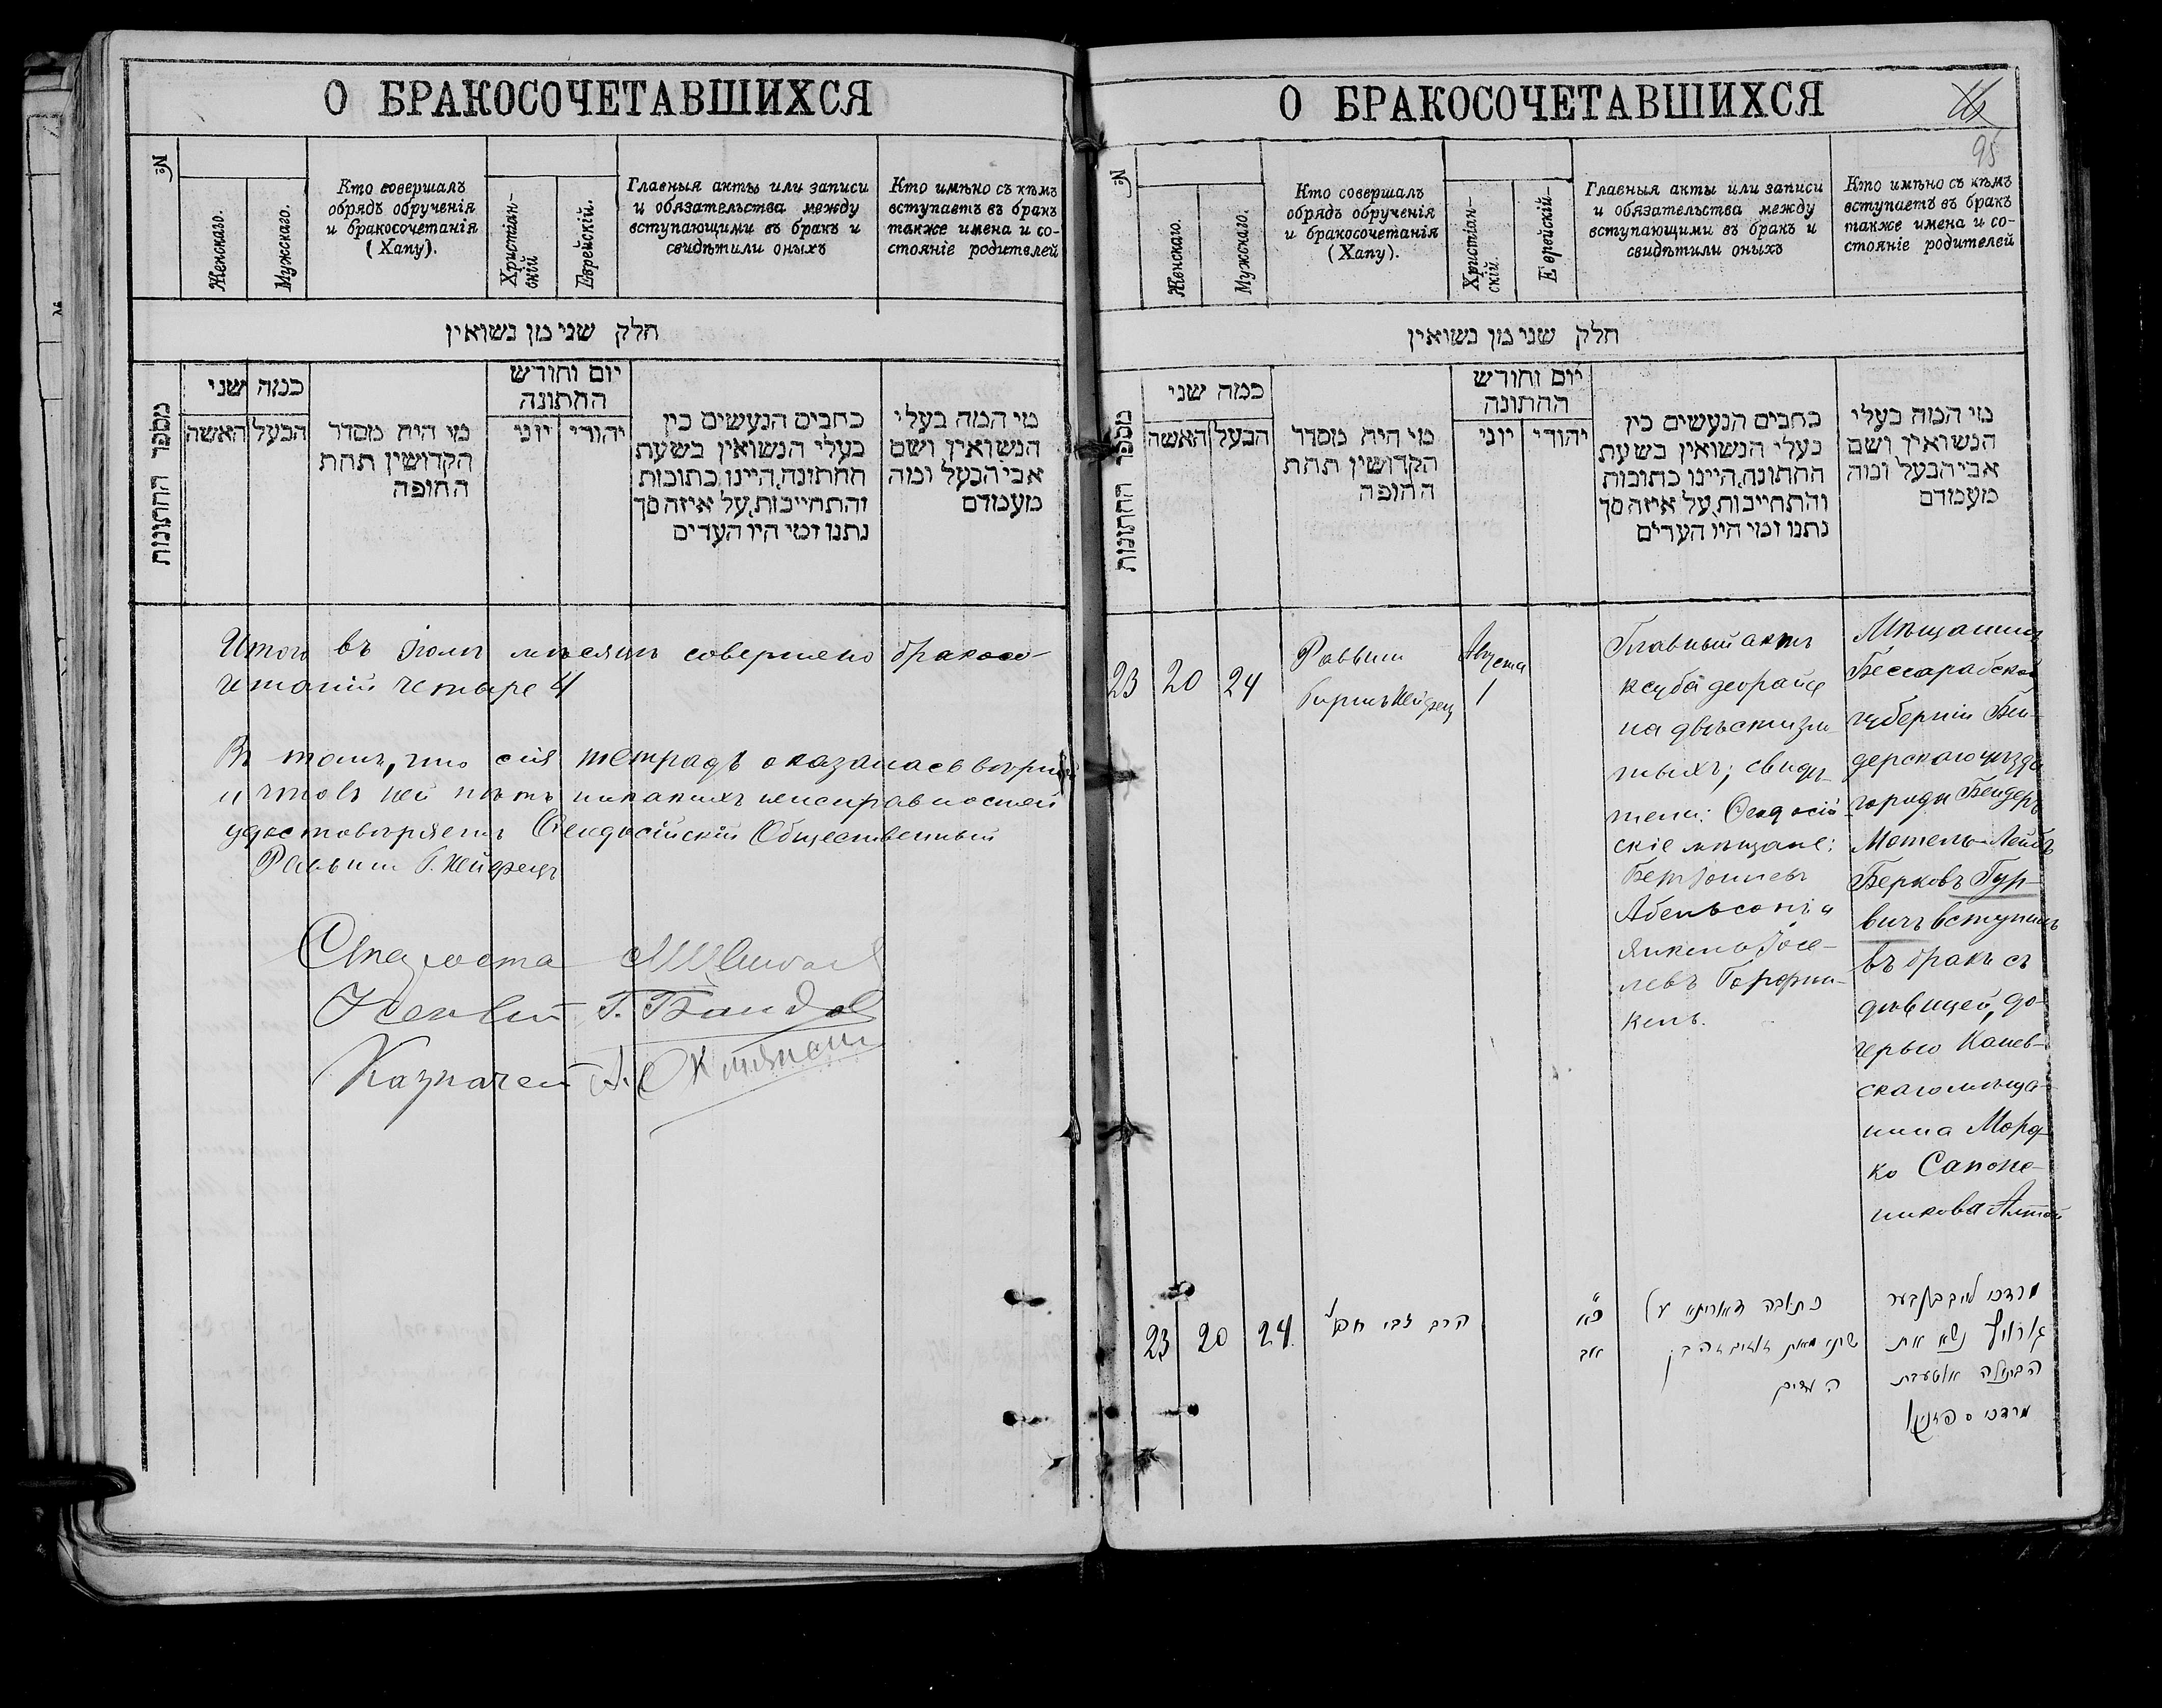 О БРАКОСОЧЕТАВШИХСЯ
№
Женскаго.
Мужскаго.
Кто совершалъ
обрядъ обрученія
и бракосочетанія
(Хапу).
Христіан-
скій
Еврейскій.
Главныя акты или записи
и обязательства между
вступающими въ бракъ и
свидѣтили оныхъ
Кто имѣно съ кѣмъ
вступаетъ въ бракъ
также имена и со-
стояніе родителей
חלק שני מן נשואין
מספר החתונות
כמה שני
האשה
הבעל
מי היה מסדר
הקדושין תחת
החופה
יום וחודש
החתונה
יוני
יהודי
כתבים הנעשים בין
בעלי הנשואין בשעת
החתונה, היינו כתובות
והתחייבות, על איזה סך
נתנו ומי היו העדים
מי המה בעלי
הנשואין ושם
אבי הבעל ומה
מעמדם
Итого въ Іюлѣ мѣсяцѣ совершено бракосо-
четаній четыре 4
Въ томъ, что сія тетрадь оказалась вѣрной
и что въ ней нѣтъ никакихъ неисправностей
удостовѣряетъ Ѳеодосійскій Общественный
Раввинъ Г. Хейфецъ
Староста
Г.
Казначей А.
О БРАКОСОЧЕТАВШИХСЯ
95
№
Женскаго.
Мужскаго.
Кто совершалъ
обрядъ обрученія
и бракосочетанія
(Хапу).
Христіан-
скій.
Еврейскій-
Главныя акты или записи
и обязательства между
вступающими въ бракъ и
свидѣтили оныхъ
Кто имѣно съ кѣмъ
вступаетъ въ бракъ
также имена и со-
стояніе родителей
חלק שני מן נשואין
מספר החתונות
כמה שני
האשה
הבעל
מי היה מסדר
הקדושין תחת
החופה
יום וחודש
החתונה
יוני
יהודי
כתבים הנעשים בין
בעלי הנשואין בשעת
החתונה, היינו כתובות
והתחייבות, על איזה סך
נתנו ומי היו העדים
מי המה בעלי
הנשואין ושם
אבי הבעל ומה
מעמדם
23
20
24
Раввинъ
Гиршъ Хейфецъ
Августа
1
Главный актъ
ксуба деорайсе
на двѣсти зло-
тыхъ; свидѣ-
тели: Ѳеодосій-
скіе мѣщане:
Абельсонъ и
Янкель Іосе-
левъ Гарфин-
кель.
Мѣщанинъ
Бессарабской
губерніи Бен-
дерскаго уѣзда
города Бендеръ
Мотель-Лейбъ
Берковъ Гур-
вичъ вступилъ
въ бракъ съ
дѣвицей, до-
черью Канев-
скаго мѣща-
нина Морд-
ко Сапож-
никова
23
20
24.
הרב צבי חפץ
כ״א
אב
כתובה דאורייתא
ה עדים
מרדכי לייב בן בער
גורוויץ נשא את
הבתולה
מרדכי